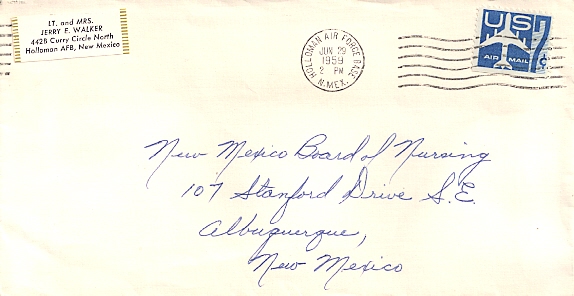 LT. and MRS.
JERRY E. WALKER
4425 Curry Circle North
Holloman AFB, New Mexico
HOLLOMAN AIR FORCE BASE
JUN 29
1959
2 PM
N.MEX.
US
7¢
AIR MAIL
New Mexico Board of Nursing
107 Stanford Drive S.E.
Albuquerque,
New Mexico